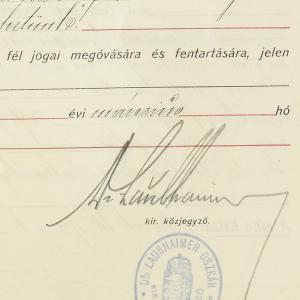 fél jogai megóvására és fentartására, jelen
évi március hó
Dr Laubhaimer
kir. közjegyző.
Dr LAUBHAIMER OSZKÁR